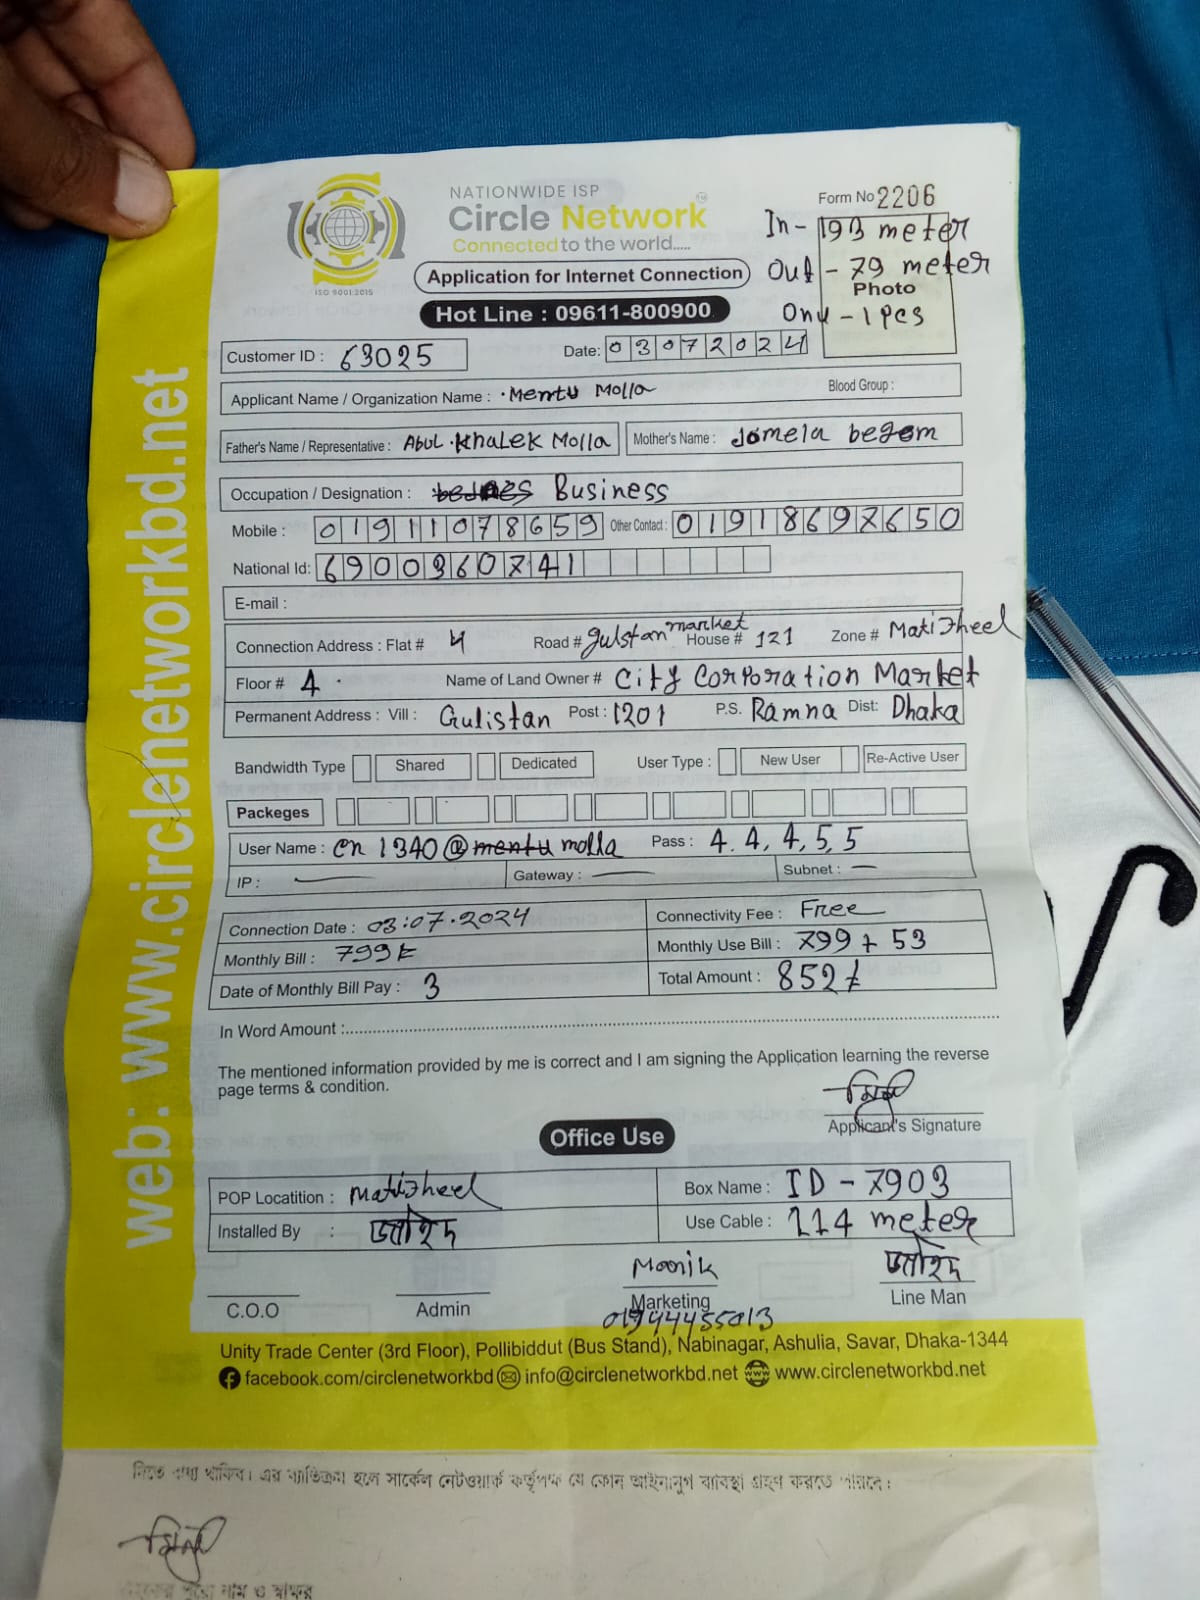 NATIONWIDE ISP
Circle Network
Connected to the world.....
ISO 9001:2015
Form No 2206
In - 193 meter
Out - 79 meter
Photo
Onu - 1 pcs
Application for Internet Connection
Hot Line : 09611-800900
Customer ID : 63025 Date: 03072024
Applicant Name / Organization Name : Mentu Molla Blood Group :
Father's Name / Representative : Abul Khalek Molla Mother's Name : Jomela begom
Occupation / Designation : Business
Mobile : 01911078659 Other Contact : 01918697650
National Id: 6900360741
E-mail :
Connection Address : Flat # 4 Road # gulstan market House # 121 Zone # Matijheel
Floor # 4 Name of Land Owner # City Corporation Market
Permanent Address : Vill : Gulistan Post : 1201 P.S. Ramna Dist: Dhaka
Bandwidth Type Shared Dedicated User Type : New User Re-Active User
Packeges
User Name : cn 1340@mentu molla Pass : 4. 4, 4, 5, 5
IP : Gateway : Subnet :
Connection Date : 03:07.2024 Connectivity Fee : Free
Monthly Bill : 799 Monthly Use Bill : 799 + 53
Date of Monthly Bill Pay : 3 Total Amount : 852
In Word Amount :
The mentioned information provided by me is correct and I am signing the Application learning the reverse
page terms & condition.
Applicant's Signature
Office Use
POP Locatition : Matijheel Box Name : ID - 7903
Installed By : জাহিদ Use Cable : 114 meter
Manik জাহিদ
C.O.O Admin Marketing Line Man
01944455013
Unity Trade Center (3rd Floor), Pollibiddut (Bus Stand), Nabinagar, Ashulia, Savar, Dhaka-1344
facebook.com/circlenetworkbd info@circlenetworkbd.net www.circlenetworkbd.net
web: www.circlenetworkbd.net
দিতে বাধ্য থাকিব। এর ব্যতিক্রম হলে সার্কেল নেটওয়ার্ক কর্তৃপক্ষ যে কোন আইনানুগ ব্যবস্থা গ্রহণ করতে পারবে।
নাম ও স্বাক্ষর